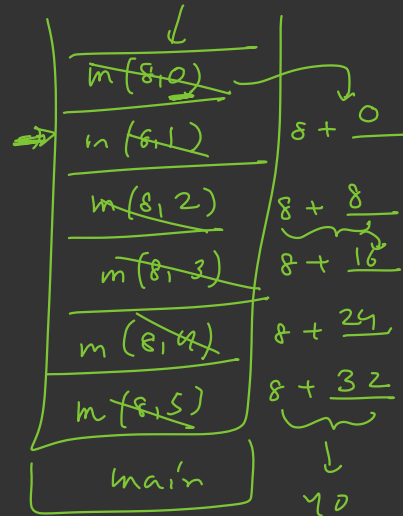 m(8,0)
m(8,1) 8 + 0
m(8,2) 8 + 8
m(8,3) 8 + 16
m(8,4) 8 + 24
m(8,5) 8 + 32
main 40